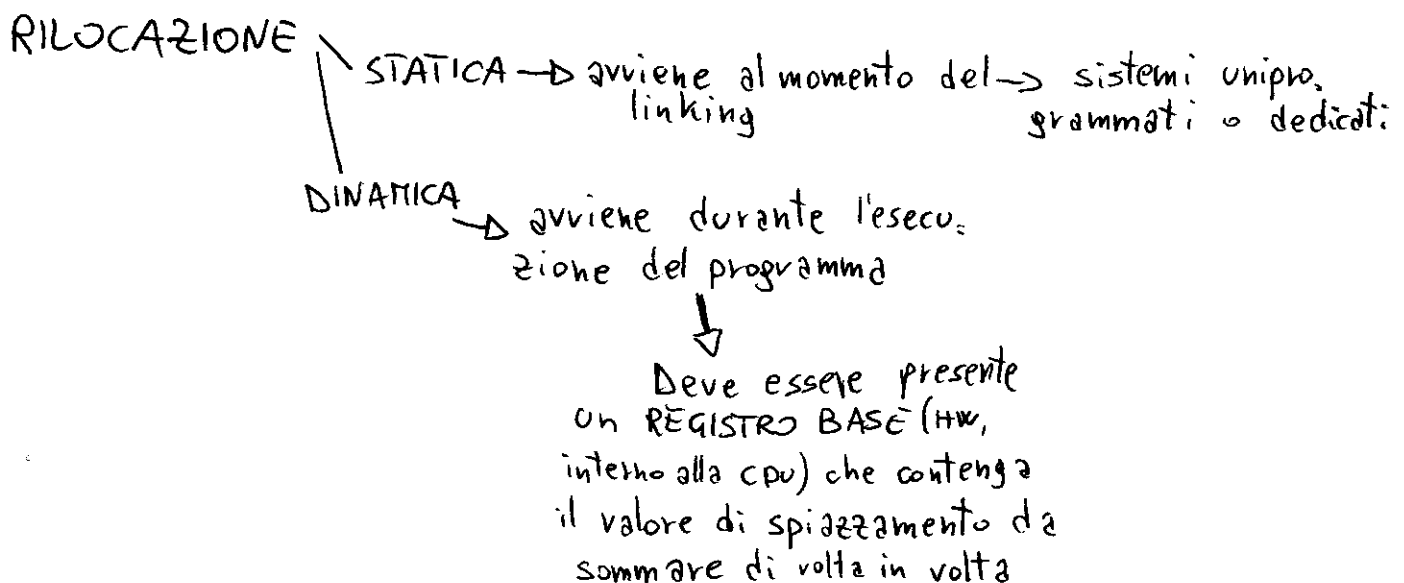 RILOCAZIONE
STATICA → avviene al momento del → sistemi unipro.
linking grammati o dedicati
DINAMICA
→ avviene durante l'esecu=
zione del programma
Deve essere presente
un REGISTRO BASE (HW,
interno alla CPU) che contenga
il valore di spiazzamento da
sommare di volta in volta